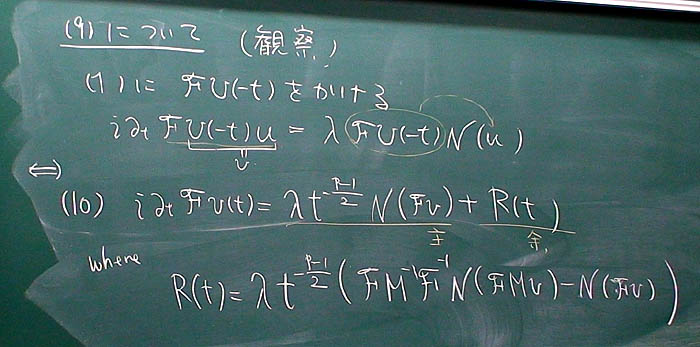 (9)について (観察)
(1)に ℱU(-t)をかける
i∂t ℱU(-t)u = λ ℱU(-t)N(u)
v
⇔
(10) i∂t ℱv(t) = λt^{-\frac{p-1}{2}} N(ℱv) + R(t)
主 余
where
R(t) = λt^{-\frac{p-1}{2}} (ℱM^{-1}ℱ^{-1}N(ℱMv) - N(ℱv))